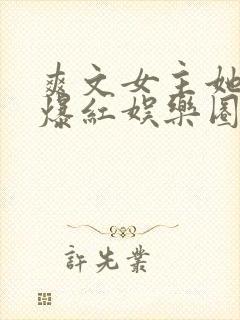 爽文女主她
爆紅娛樂圈
許先業